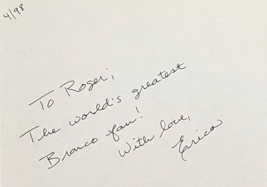 4/98
To Roger;
The world's greatest
Bronco fan!
With love,
Erica